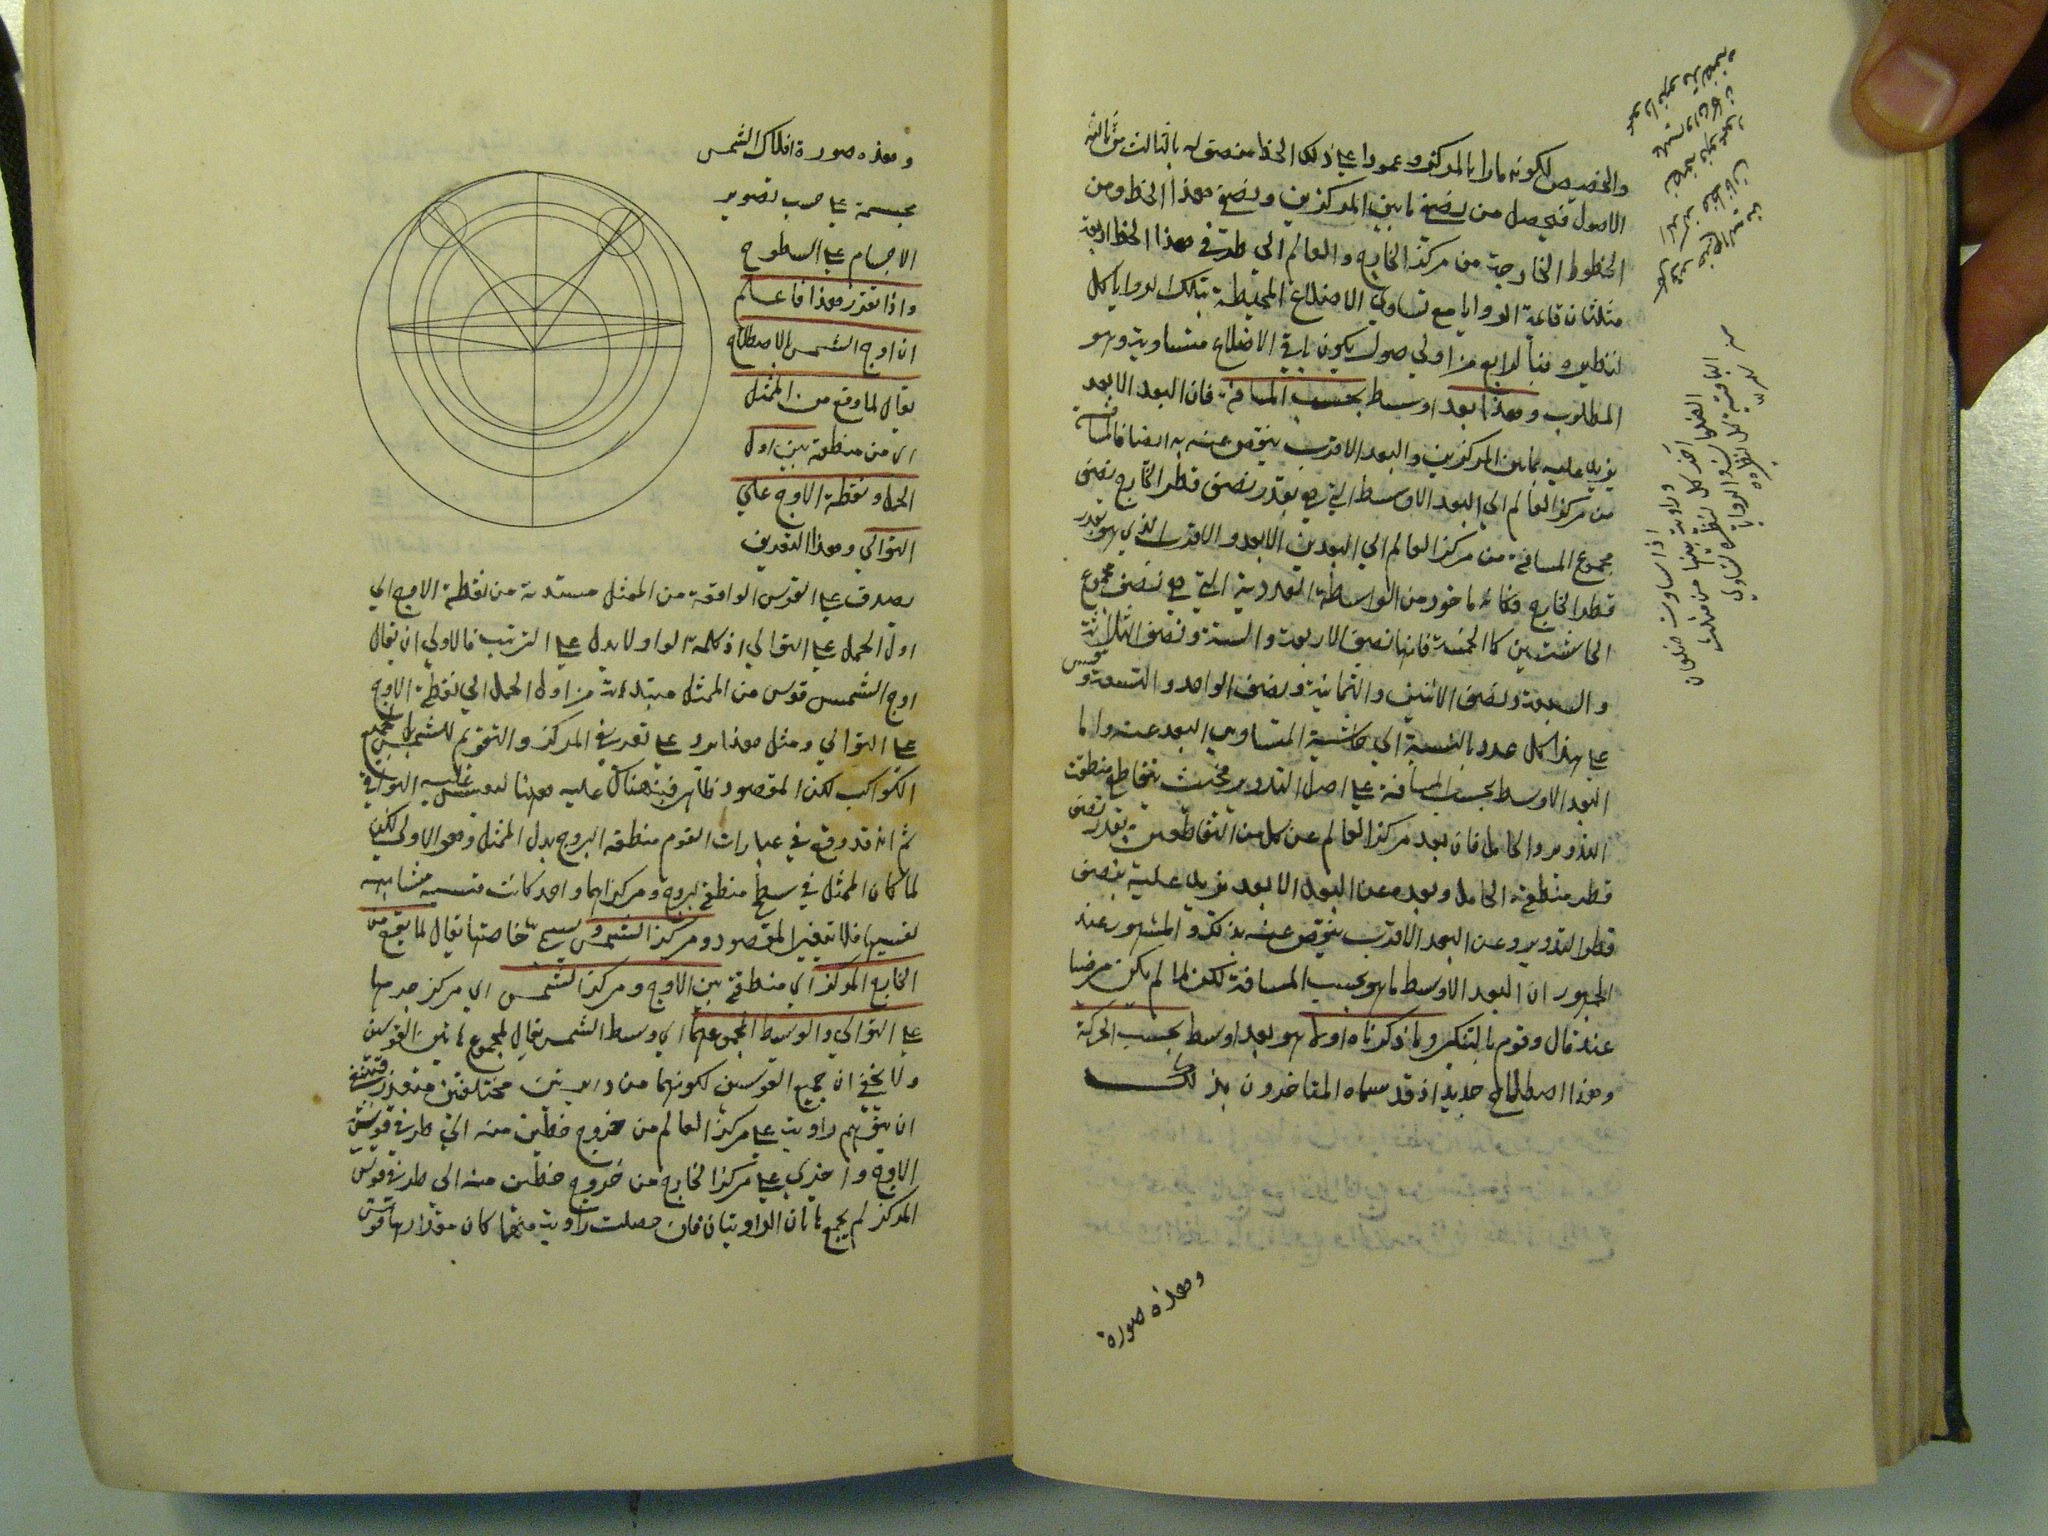 والحضيض لكونه مارا بالمركز وعمودا على ذلك الخط منصف له بالثالث من ثالثة
الاصول فيحصل من نصف ما بين المركزين ونصفي هذا الخط ومن
الخطوط الخارجة من مركز الخارج والعالم الى طرفي هذا الخط اربعة
مثلثات قائمة الزوايا مع تساوي الاضلاع المحيطة بتلك الزوايا كل
لنظيره فبالرابع من اولى الاصول يكون باقي الاضلاع متساوية وهو
المطلوب وهذا بعد اوسط بحسب المسافة فان البعد الابعد
يزيد عليه بما بين المركزين والبعد الاقرب ينقص عنه به ايضا فالمسافة
من مركز العالم الى البعد الاوسط التي هي بقدر نصف قطر الخارج نصف
مجموع المسافة من مركز العالم الى البعدين الابعد والاقرب الذي هو بقدر
قطر الخارج فكانه ماخوذ من الواسطة العددية التي هي نصف مجموع
الحاشيتين كالخمسة فانها نصف الاربعة والستة ونصف الثلاثة
والسبعة ونصف الاثنين والثمانية ونصف الواحد والتسعة وقس
على هذا كل عدد بالنسبة الى حاشيتيه المتساويتي البعد عنه واما
البعد الاوسط بحسب المسافة على اصل التدوير فحيث يتقاطع منطقتا
التدوير والحامل فان بعد مركز العالم عن كل من التقاطعين بقدر نصف
قطر منطقة الحامل وبعده عن البعد الابعد يزيد عليه بنصف
قطر التدوير وعن البعد الاقرب ينقص عنه بذلك والمشهور عند
الجمهور ان البعد الاوسط ما هو بحسب المسافة لكن لما لم يكن مرضيا
عنده قال وقوم بالتنكير وما ذكرناه اولا هو بعد اوسط بحسب الحركة
وهذا اصطلاح جديد اذ قد سماه المتاخرون بذلك
وهذه صورة
وهذه صورة افلاك الشمس
مجسمة على حسب تصوير
الاجسام على السطوح
واذا تقرر هذا فاعلم
ان اوج الشمس في الاصطلاح
يقال لما وقع من الممثل
اي من منطقة بين اول
الحمل ونقطة الاوج على
التوالي وهذا التعريف
يصدق على القوس الواقعة من الممثل مبتدئة من نقطة الاوج الى
اول الحمل على التوالي اذ كلمة الواو لا يدل على الترتيب فالاولى ان يقال
اوج الشمس قوس من الممثل مبتدئة من اول الحمل الى نقطة الاوج
على التوالي ومثل هذا يرد على تعريفي المركز والتقويم للشمس بل لجميع
الكواكب لكن المقصود ظاهر فبنينا هناك عليه
ثم انه قد وقع في عبارات القوم منطقة البروج بدل الممثل وهو الاولى لكن
لما كان الممثل في سطح منطقة البروج ومركزاهما واحد كانت قسيه مشابهة
لقسيها فلا تغيير المقصود ومركز الشمس ويسمى خاصتها يقال لما يقع من
الخارج المركز اي منطقته بين الاوج ومركز الشمس اي مركز جرمها
على التوالي والوسط المجموع منهما اي وسط الشمس يقال لمجموع هاتين القوسين
ولا يخفى ان جميع القوسين لكونهما من دايرتين مختلفتين متعذر فينبغي
ان يتوهم زاوية على مركز العالم من خروج خطين منه الى طرفي قوس
الاوج واخرى على مركز الخارج من خروج خطين منه الى طرفي قوس
المركز ثم يجمع هاتان الزاويتان فان حصلت زاوية منهما كان مقدارها قوس